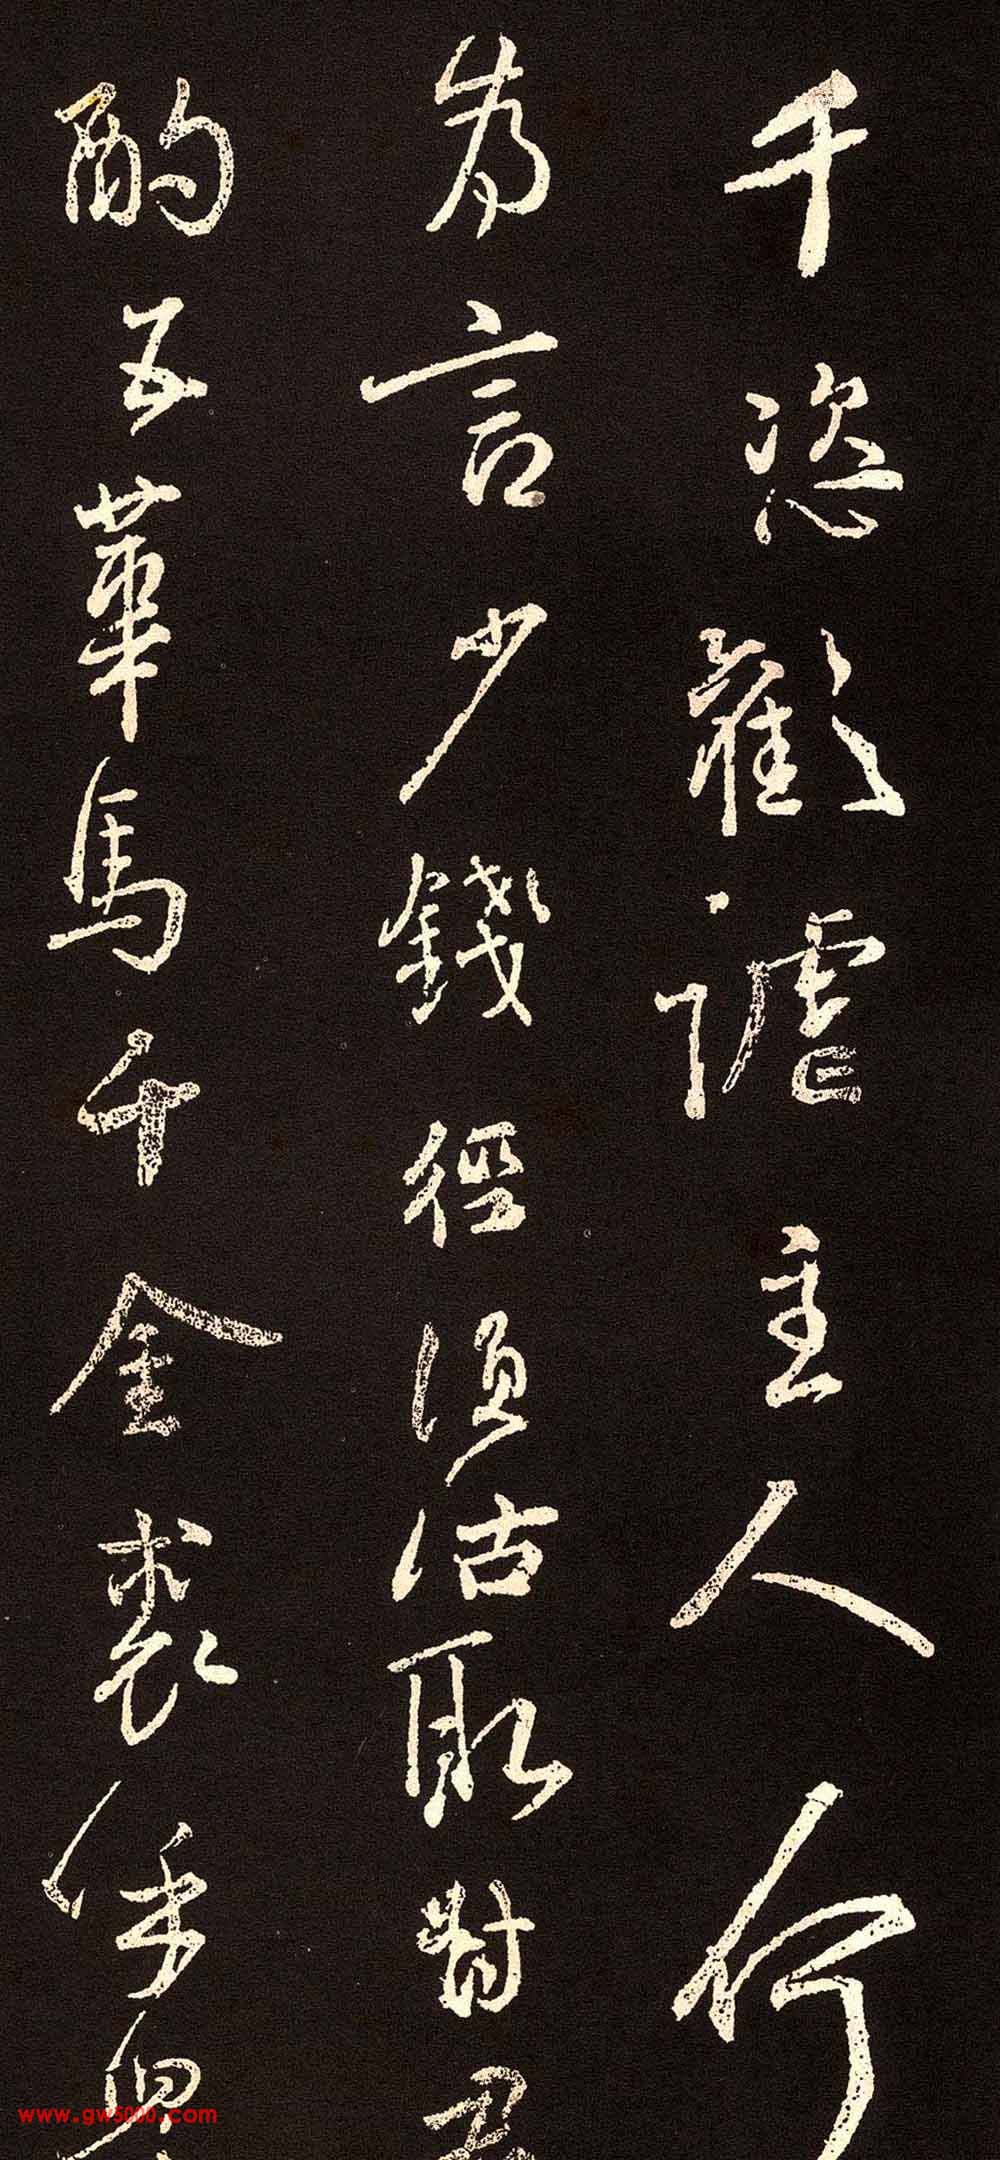 千恣歡謔主人何
為言少錢徑須沽取對君
酌五華馬千金裘呼兒
www.gw5000.com